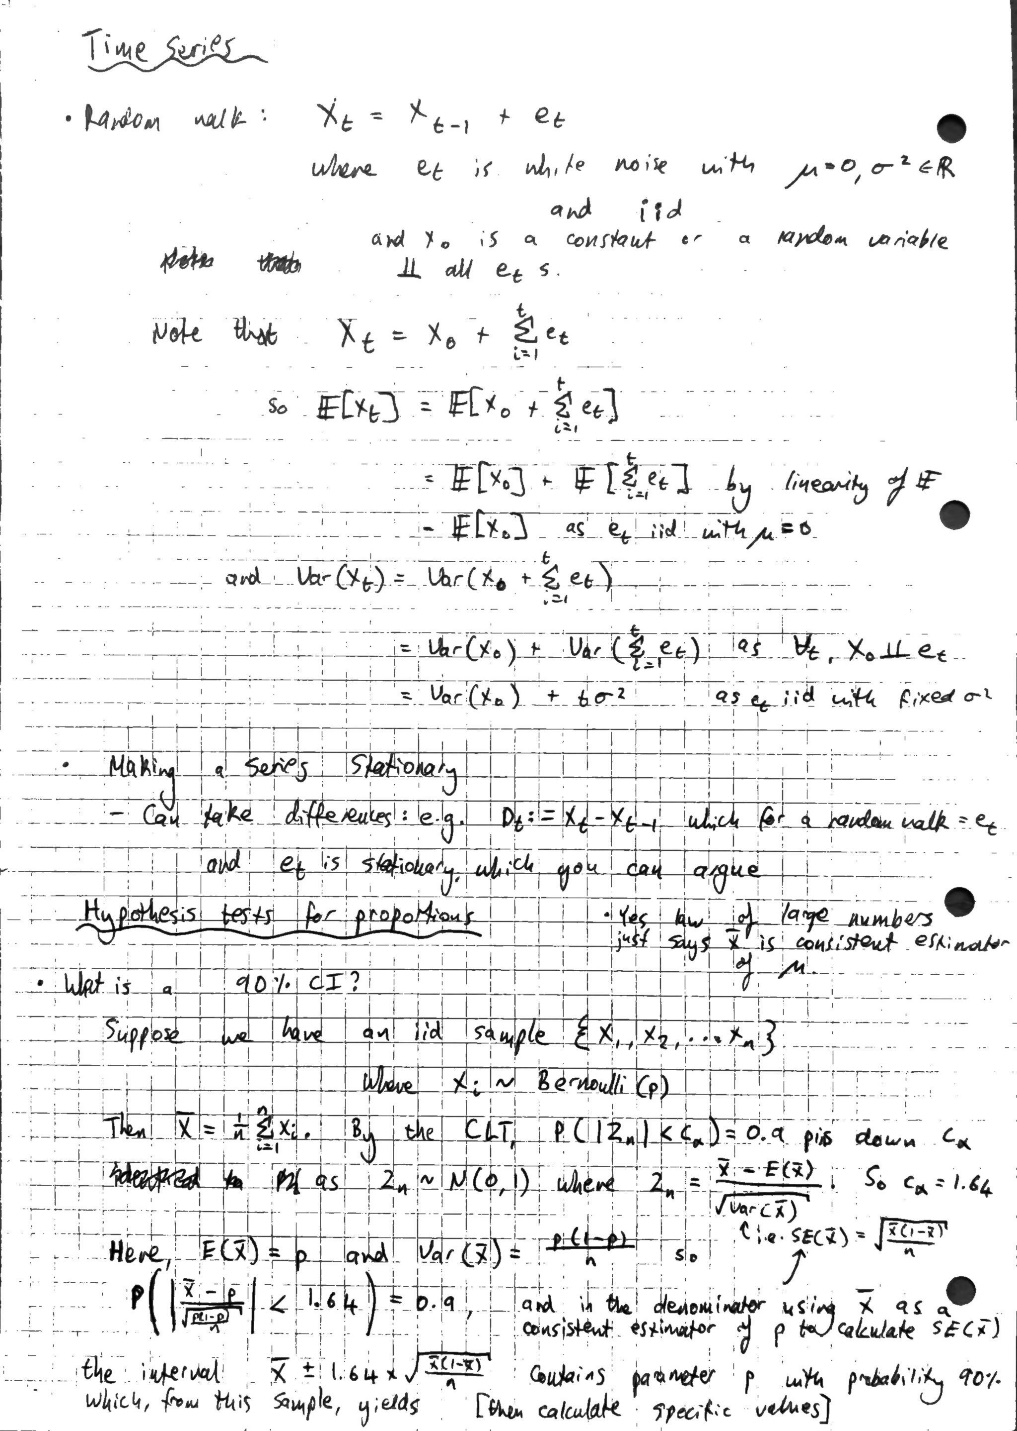 Time Series
• Random walk: Xt = Xt-1 + et
where et is white noise with μ=0, σ² ∈ ℝ
and iid
and X₀ is a constant or a random variable
⫫ all et s.
Note that Xt = X₀ + Σ_{i=1}^{t} et
so 𝔼[Xt] = 𝔼[X₀ + Σ_{i=1}^{t} et]
= 𝔼[X₀] + 𝔼[Σ_{i=1}^{t} et] by linearity of 𝔼
= 𝔼[X₀] as et iid with μ=0
and Var(Xt) = Var(X₀ + Σ_{i=1}^{t} et)
= Var(X₀) + Var(Σ_{i=1}^{t} et) as ∀t, X₀ ⫫ et
= Var(X₀) + tσ² as et iid with fixed σ²
• Making a series stationary
- Can take differences: e.g. Dt := Xt - Xt-1 which for a random walk = et
and et is stationary, which you can argue
Hypothesis tests for proportions
• Yes law of large numbers
just says X̄ is consistent estimator
of μ.
• What is a 90% CI?
Suppose we have an iid sample {X₁, X₂, ... Xn}
where Xi ~ Bernoulli(p)
Then X̄ = 1/n Σ_{i=1}^{n} Xi. By the CLT, P(|Zn| < cα) = 0.9 pins down cα
as Zn ~ N(0,1) where Zn = (X̄ - E(X̄))/√Var(X̄). So cα = 1.64
(i.e. SE(X̄) = √(X̄(1-X̄)/n)
Here, E(X̄) = p and Var(X̄) = p(1-p)/n so
P(|(X̄ - p)/√(p(1-p)/n)| < 1.64) = 0.9, and in the denominator using X̄ as a
consistent estimator of p to calculate SE(X̄)
the interval X̄ ± 1.64 × √(X̄(1-X̄)/n) contains parameter p with probability 90%
which, from this sample, yields [then calculate specific values]